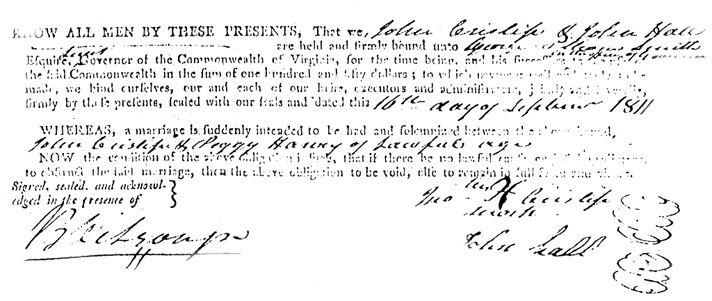 KNOW ALL MEN BY THESE PRESENTS, That we, John Crislip & John Hall
are held and firmly bound unto George Smith
Esquire, Governor of the Commonwealth of Virginia, for the time being, and his successors
the said Commonwealth in the sum of one hundred and fifty dollars; to which payment well and truly to be
made, we bind ourselves, our and each of our heirs, executors and administrators, jointly and severally,
firmly by these presents, sealed with our seals and dated this 16th day of September 1811
WHEREAS, a marriage is suddenly intended to be had and solemnized between the above bound,
John Crislip & Peggy Henry of Lawful age
NOW the condition of the above obligation is such, that if there be no lawful cause
to obstruct the said marriage, then the above obligation to be void, else to remain in full force and virtue.
Signed, sealed, and acknowl-
edged in the presence of
his
Jno H Crislip
mark
John Hall